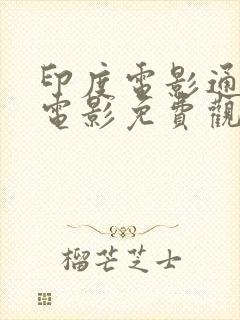 印度電影通
電影免費觀
榴芒芝士